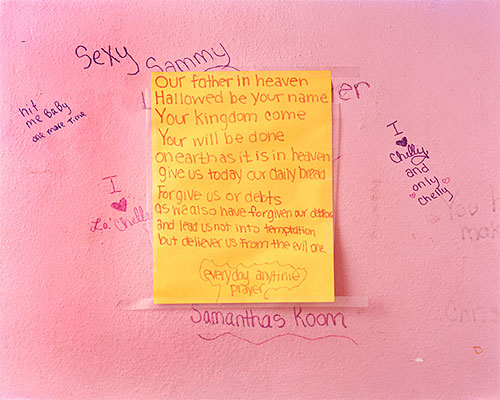 Sexy Sammy
er
hit
me Baby
one more Time
I
La' Chelly
Our father in heaven
Hallowed be your name
Your Kingdom come
Your will be done
on earth as it is in heaven
give us today our daily bread
Forgive us or debts
as we also have forgiven our debtors
and lead us not into temptation
but deliever us from the evil one.
everyday anytime
prayer
I
Chelly
and
only
chelly
Samanthas Room